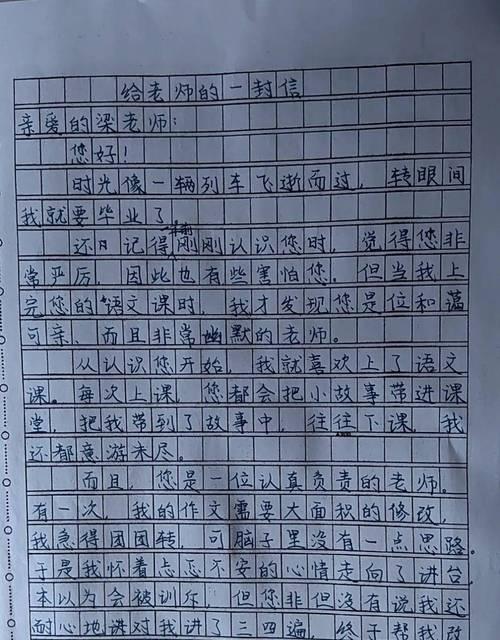 给老师的一封信
亲爱的梁老师：
您好！
时光像一辆列车飞逝而过，转眼间
我就要毕业了
还记得一年前刚刚认识您时，觉得您非
常严厉，因此也有些害怕您。但当我上
完您的语文课时，我才发现您是位和蔼
可亲、而且非常幽默的老师。
从认识您开始，我就喜欢上了语文
课。每次上课，您都会把小故事带进课
堂，把我带到了故事中，往往下课，我
还都意游未尽。
而且，您是一位认真负责的老师。
有一次，我的作文需要大面积的修改，
我急得团团转，可脑子里没有一点思路。
于是我怀着忐忑不安的心情走向了讲台，
本以为会被训斥，但您非但没有说我还
耐心地讲对我讲了三四遍，终于帮我改